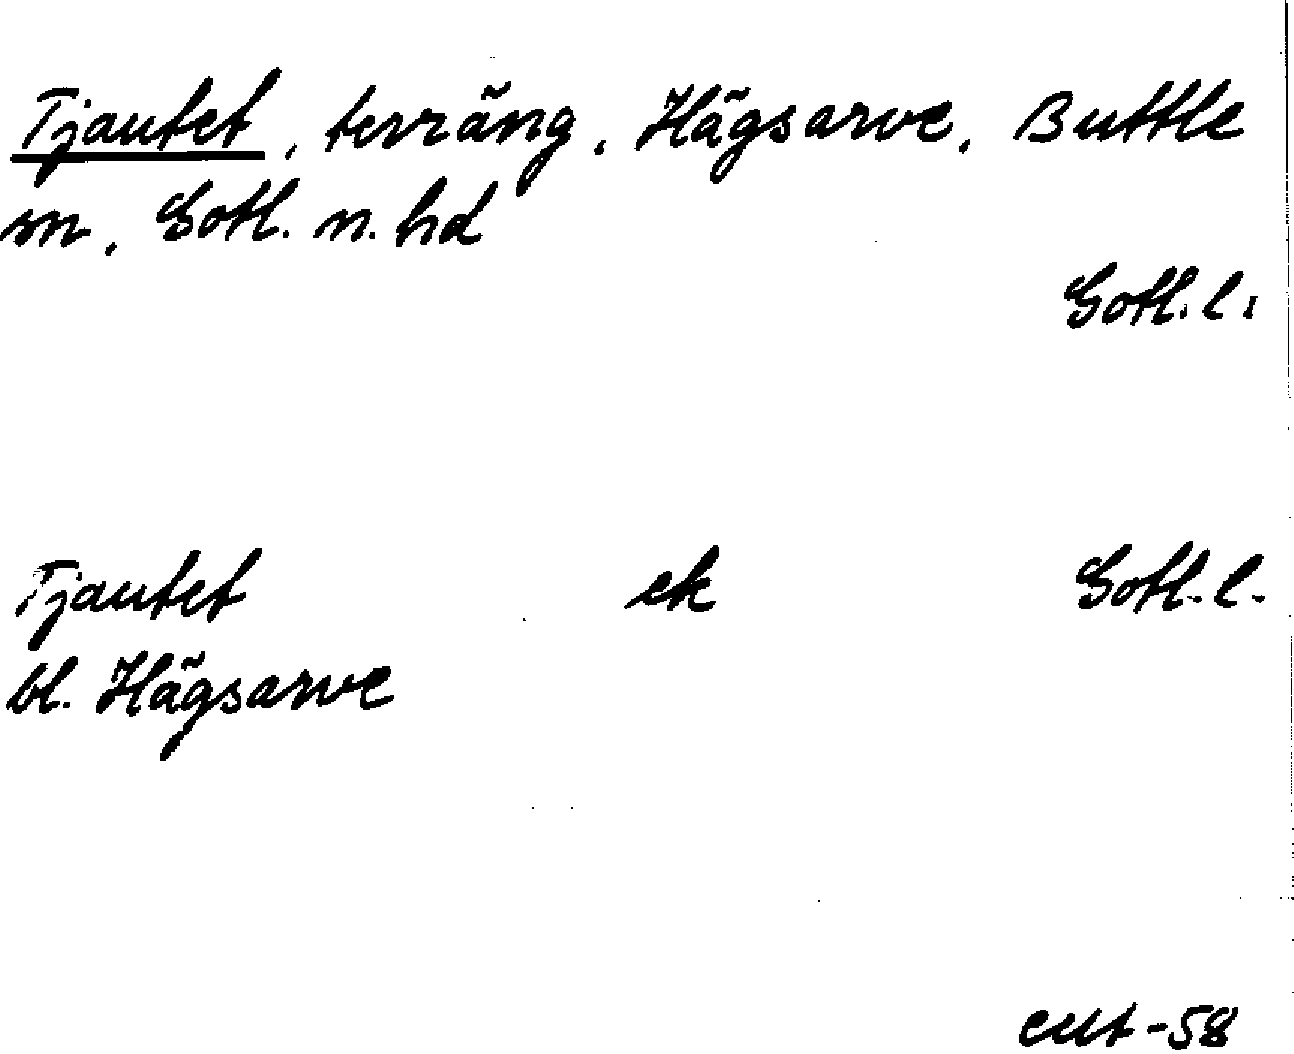 Tjautet, terräng, Hägsarve, Buttle
sn, Gotl. n. hd
Gotl. l.
Tjautet ek Gotl. l.
bl. Hägsarve
-58